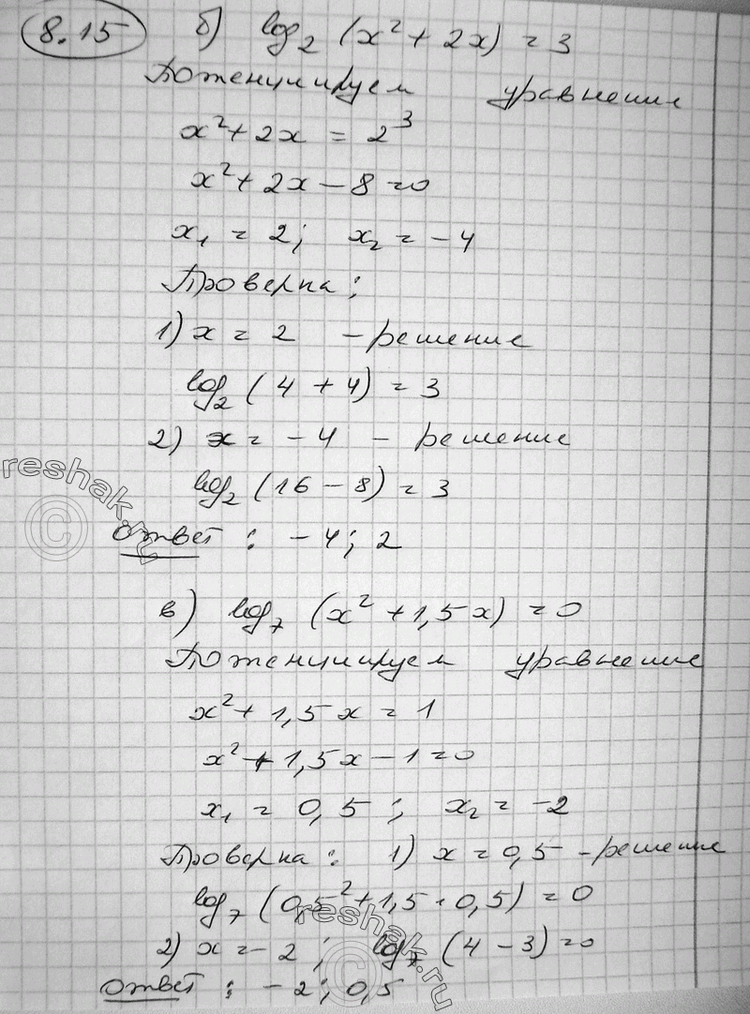 8.15 б) log₂ (x² + 2x) = 3
Потенцируем уравнение
x² + 2x = 2³
x² + 2x - 8 = 0
x₁ = 2; x₂ = -4
Проверка:
1) x = 2 - решение
log₂ (4 + 4) = 3
2) x = -4 - решение
log₂ (16 - 8) = 3
reshak.ru
©
Ответ: -4; 2
в) log₇ (x² + 1,5x) = 0
Потенцируем уравнение
x² + 1,5x = 1
x² + 1,5x - 1 = 0
x₁ = 0,5; x₂ = -2
Проверка: 1) x = 0,5 - решение
log₇ (0,5² + 1,5 · 0,5) = 0
2) x = -2; log₇ (4 - 3) = 0
reshak.ru
©
Ответ: -2; 0,5